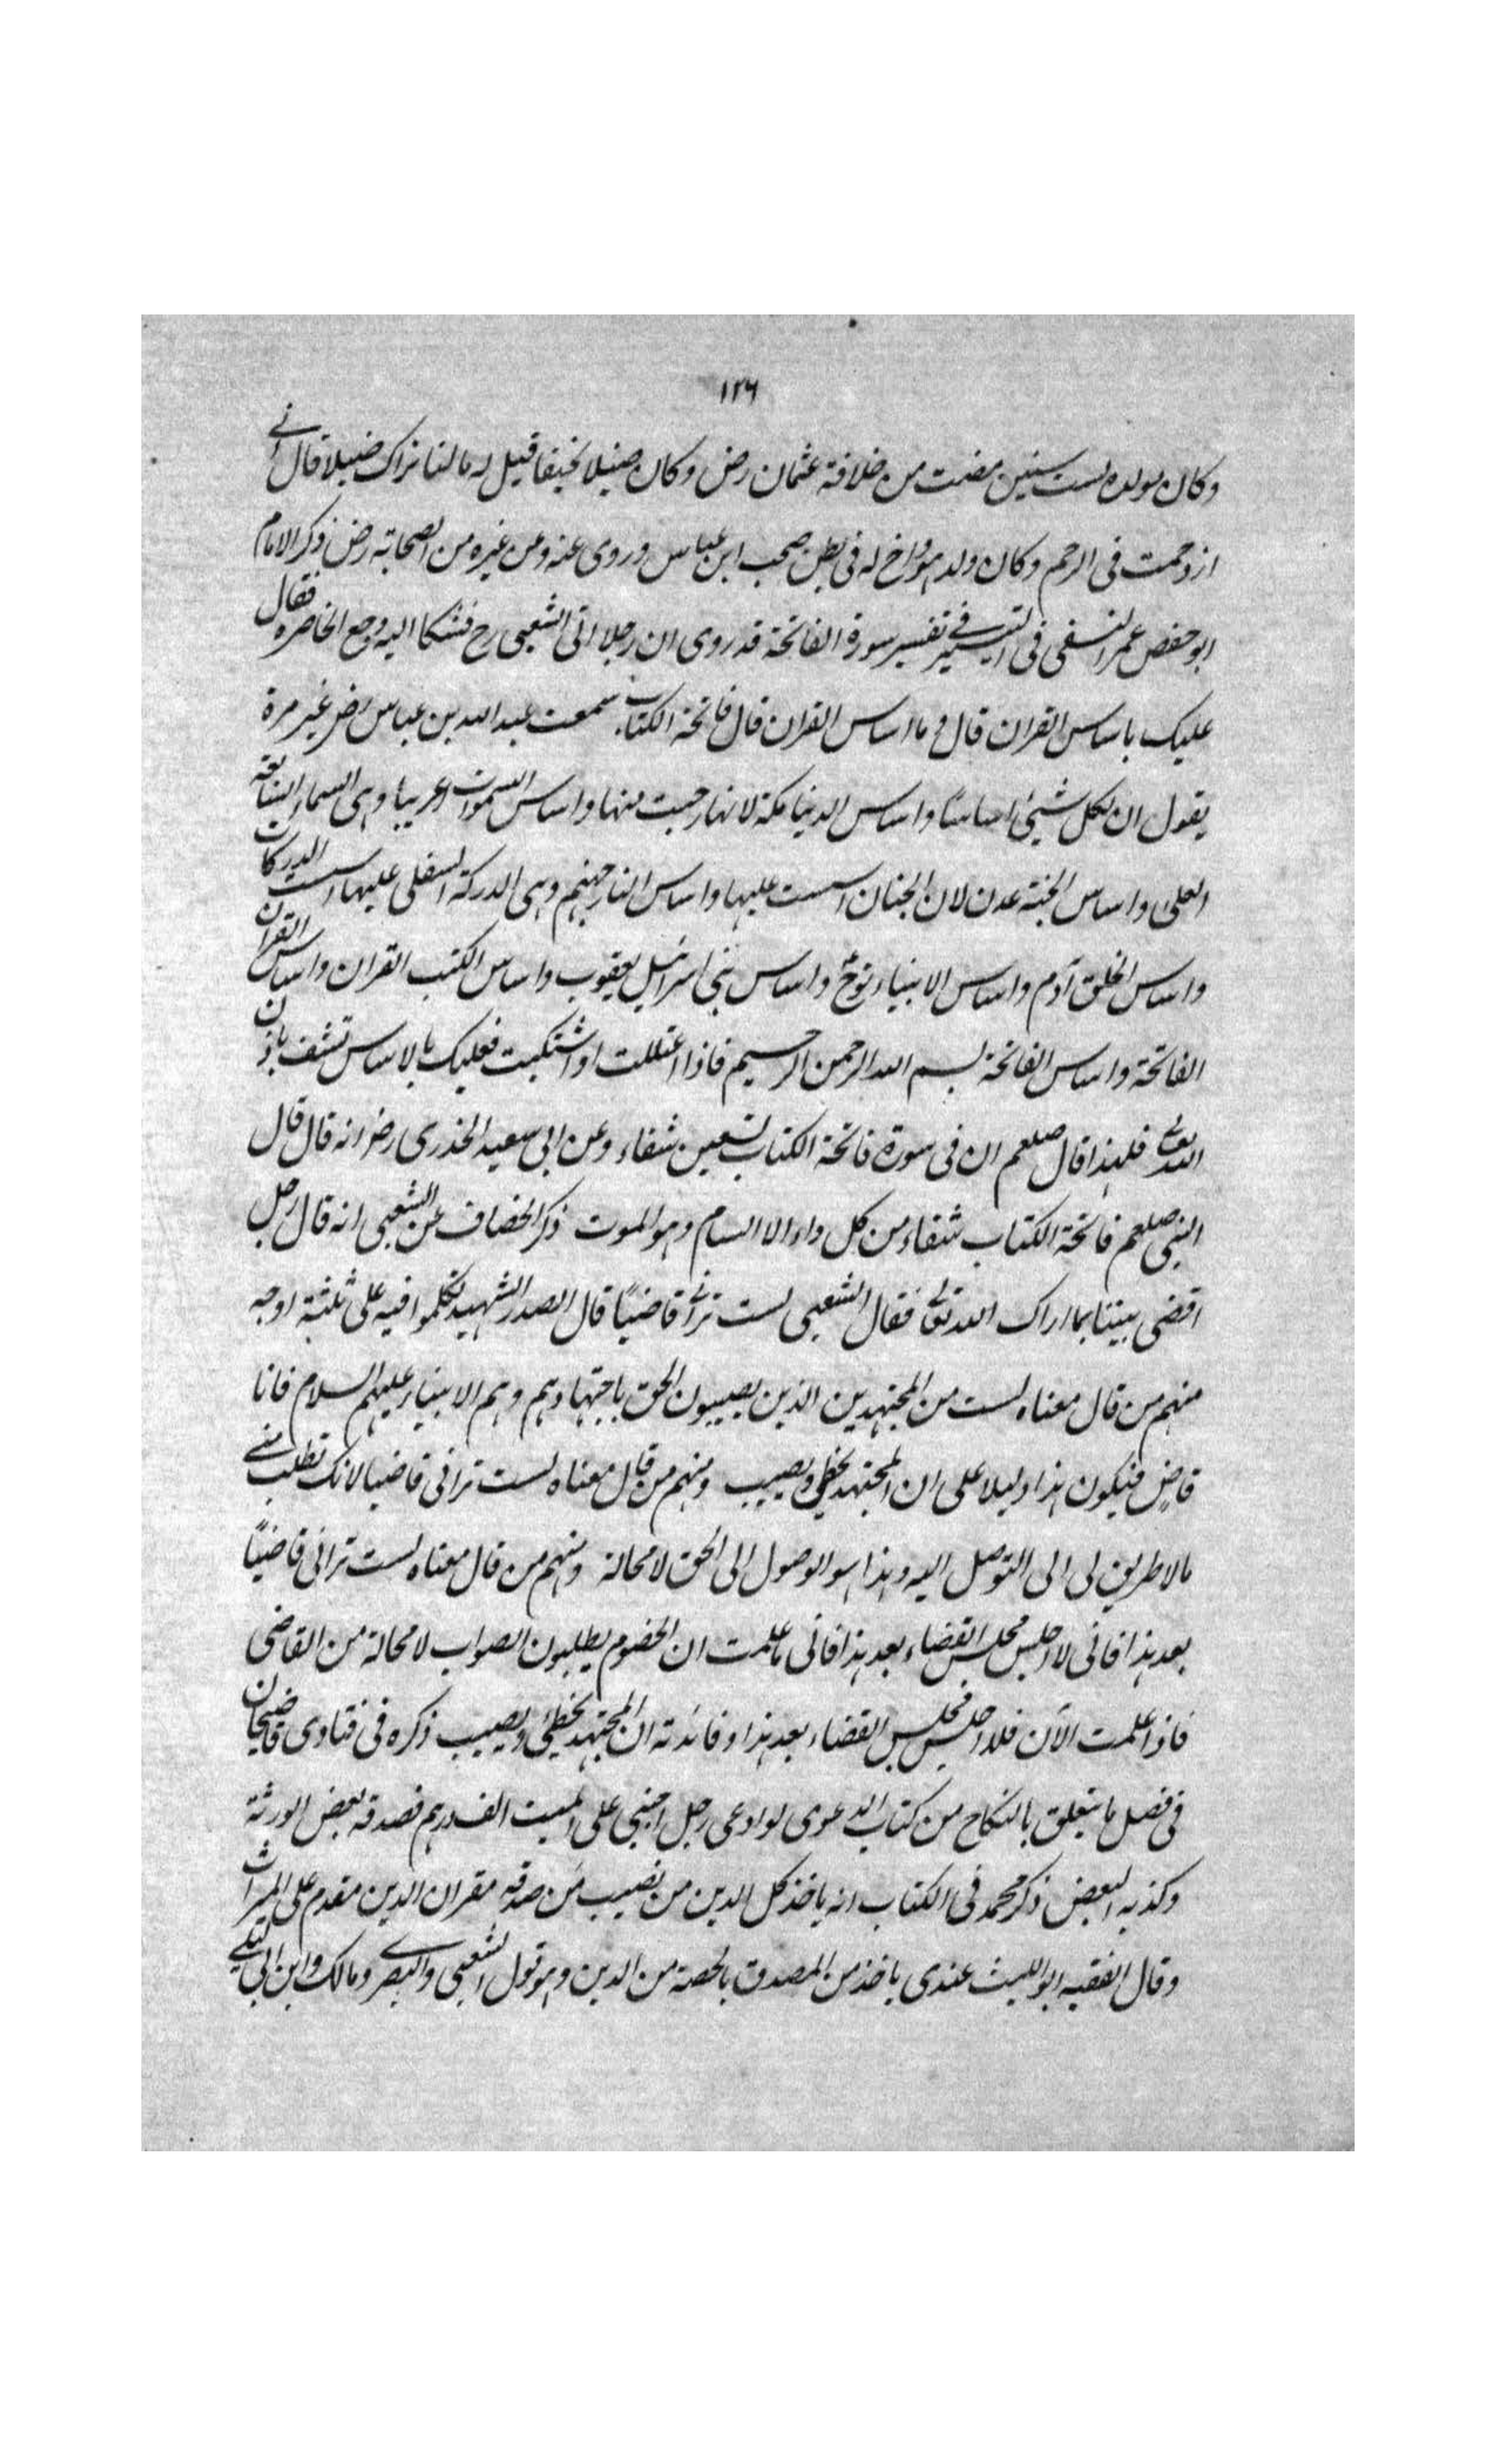 ١٢٦
وكان مولده لست سنين مضت من خلافة عثمان رض وكان ضئيلا نحيفا قيل له مالنا نراك ضئيلا قال اني
ازدحمت فى الرحم وكان ولد هو واخ له فى بطن صحب ابن عباس وروى عنه ومن غيره من الصحابة رض ذكر الامام
ابو حفص عمر النسفى فى التيسير فى تفسير سورة الفاتحة قد روى ان رجلا اتى الشعبى رح فشكا اليه وجع الخاصرة فقال
عليك باساس القران قال وما اساس القران قال فاتحة الكتاب سمعت عبد الله بن عباس رض غير مرة
يقول ان لكل شيئ اساسا واساس الدنيا مكة لانها دحيت منها واساس السموات عريبا وهى السماء السابعة
العلى واساس الجنة عدن لان الجنان اسست عليها واساس النار جهنم وهى الدركة السفلى عليها اسست الدركات
واساس الخلق آدم واساس الانبياء نوح واساس بنى اسرائيل يعقوب واساس الكتب القران واساس القران
الفاتحة واساس الفاتحة بسم الله الرحمن الرحيم فاذا اعتللت او اشتكيت فعليك بالاساس تشف باذن
الله تعالى فلهذا قال صلعم ان فى سورة فاتحة الكتاب تسعين شفاء وعن ابى سعيد الخدرى رض انه قال قال
النبى صلعم فاتحة الكتاب شفاء من كل داء الا السام وهو الموت ذكر الخصاف عن الشعبى انه قال رجل
اقضى بيننا بما اراك الله تعالى فقال الشعبى لست ترانى قاضيًا قال الصدر الشهيد تكلموا فيه على ثلثة اوجه
منهم من قال معناه لست من المجتهدين الذين يصيبون الحق باجتهادهم وهم الانبياء عليهم السلام فانا
قاضٍ فيكون هذا دليلا على ان المجتهد يخطى ويصيب ومنهم من قال معناه لست ترانى قاضيا لانك تطلب منى
مالا طريق لى الى التوصل اليه وهذا هو الوصول الى الحق لا محالة ومنهم من قال معناه لست ترانى قاضيًا
بعد هذا فانى لا اجلس مجلس القضاء بعد هذا فانى ما علمت ان الخصوم يطلبون الصواب لا محالة من القاضى
فاذا علمت الآن فلا اجلس مجلس القضاء بعد هذا وفائدته ان المجتهد يخطئ ويصيب ذكره فى فتاوى قاضيخان
فى فصل ما يتعلق بالنكاح من كتاب الدعوى لو ادعى رجل اجنبى على الميت الف درهم فصدقه بعض الورثة
وكذبه البعض ذكر محمد فى الكتاب انه ياخذ كل الدين من نصيب من صدقه مقر ان الدين مقدم على الميراث
وقال الفقيه ابو الليث عندى ياخذ من المصدق بالحصة من الدين وهو قول الشعبى والبصرى ومالك وابن ابى ليلى